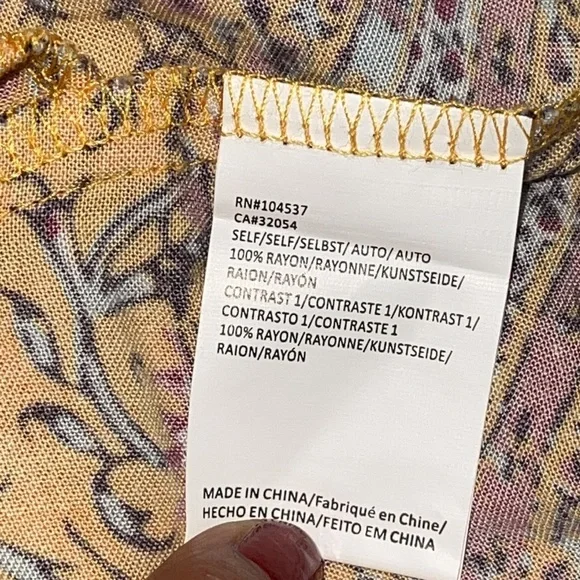 RN#104537
CA#32054
SELF/SELF/SELBST/ AUTO/ AUTO
100% RAYON/RAYONNE/KUNSTSEIDE/
RAION/RAYÓN
CONTRAST 1/CONTRASTE 1/KONTRAST 1/
CONTRASTO 1/CONTRASTE 1
100% RAYON/RAYONNE/KUNSTSEIDE/
RAION/RAYÓN
MADE IN CHINA/Fabriqué en Chine/
HECHO EN CHINA/FEITO EM CHINA